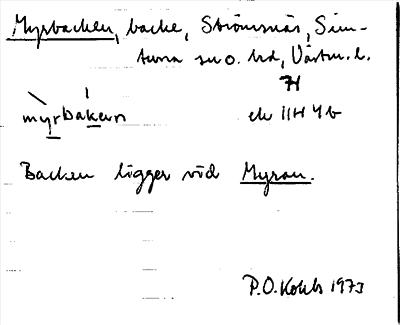 Myrbacken, backe, Strömsnäs, Sim-
tuna sn o. hd, Västm. l.
myrbakən
ek 11H 4b
Backen ligger vid Myran.
P.O. 1973